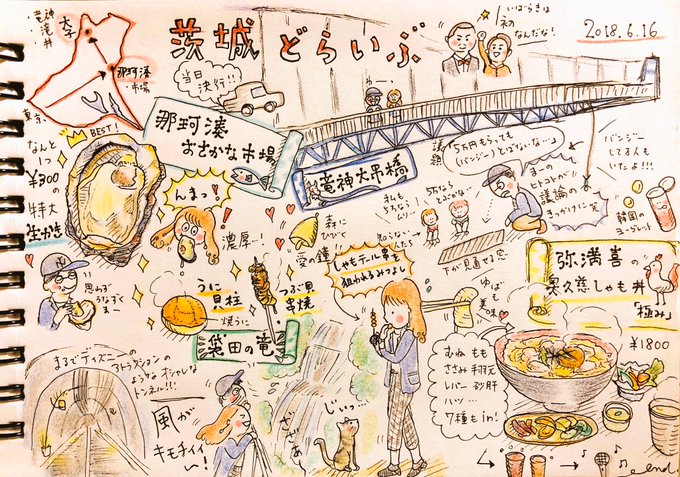 茨城どらいぶ
2018.6.16
いばらきは
初
なんだな!
竜神
滝
大子
那珂湊
・市場
東京
当日
決行!!
わーっ
那珂湊
おさかな市場
竜神大吊橋
BEST!
なんと
1つ
¥300
の特大
生がき
んまっ!
濃厚…!
思わず
うなずく
うまー
森に
ひびく
愛の鐘
うに
貝柱
焼うに
つぶ貝
串焼
5万円もらっても
(バンジー)とばないな…
議論の
きっかけに笑
バンジー
してる人も
いたよ!!!
韓国の
ヨーグレット
下が見渡せる窓
しゃもテール串を
狙われるみつよし
ゆばも
美味
弥満喜の
奥久慈しゃも丼
「極み」
¥1800
むね もも
ささみ 手羽元
レバー 砂肝
ハツ…
7種もin!
袋田の滝
まるでディズニーの
アトラクションの
ようなオシャレな
トンネル!!!
風が
キモチイイ
〜!
ざざあ
じいっ…
end.